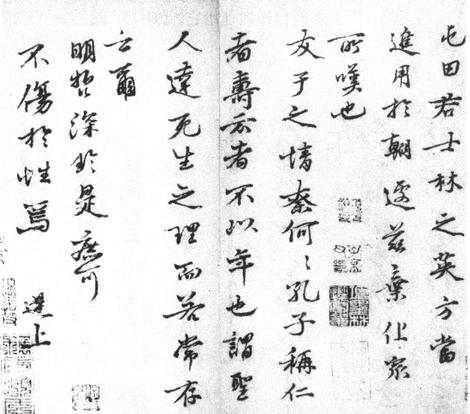 屯田君士林之英方當
進用於朝遽茲棄化衆
所嘆也
友于之情奈何〻孔子稱仁
者壽者不以年也謂聖
人達死生之理而若常存
云爾
明哲深於是庶可
不傷於性焉 上